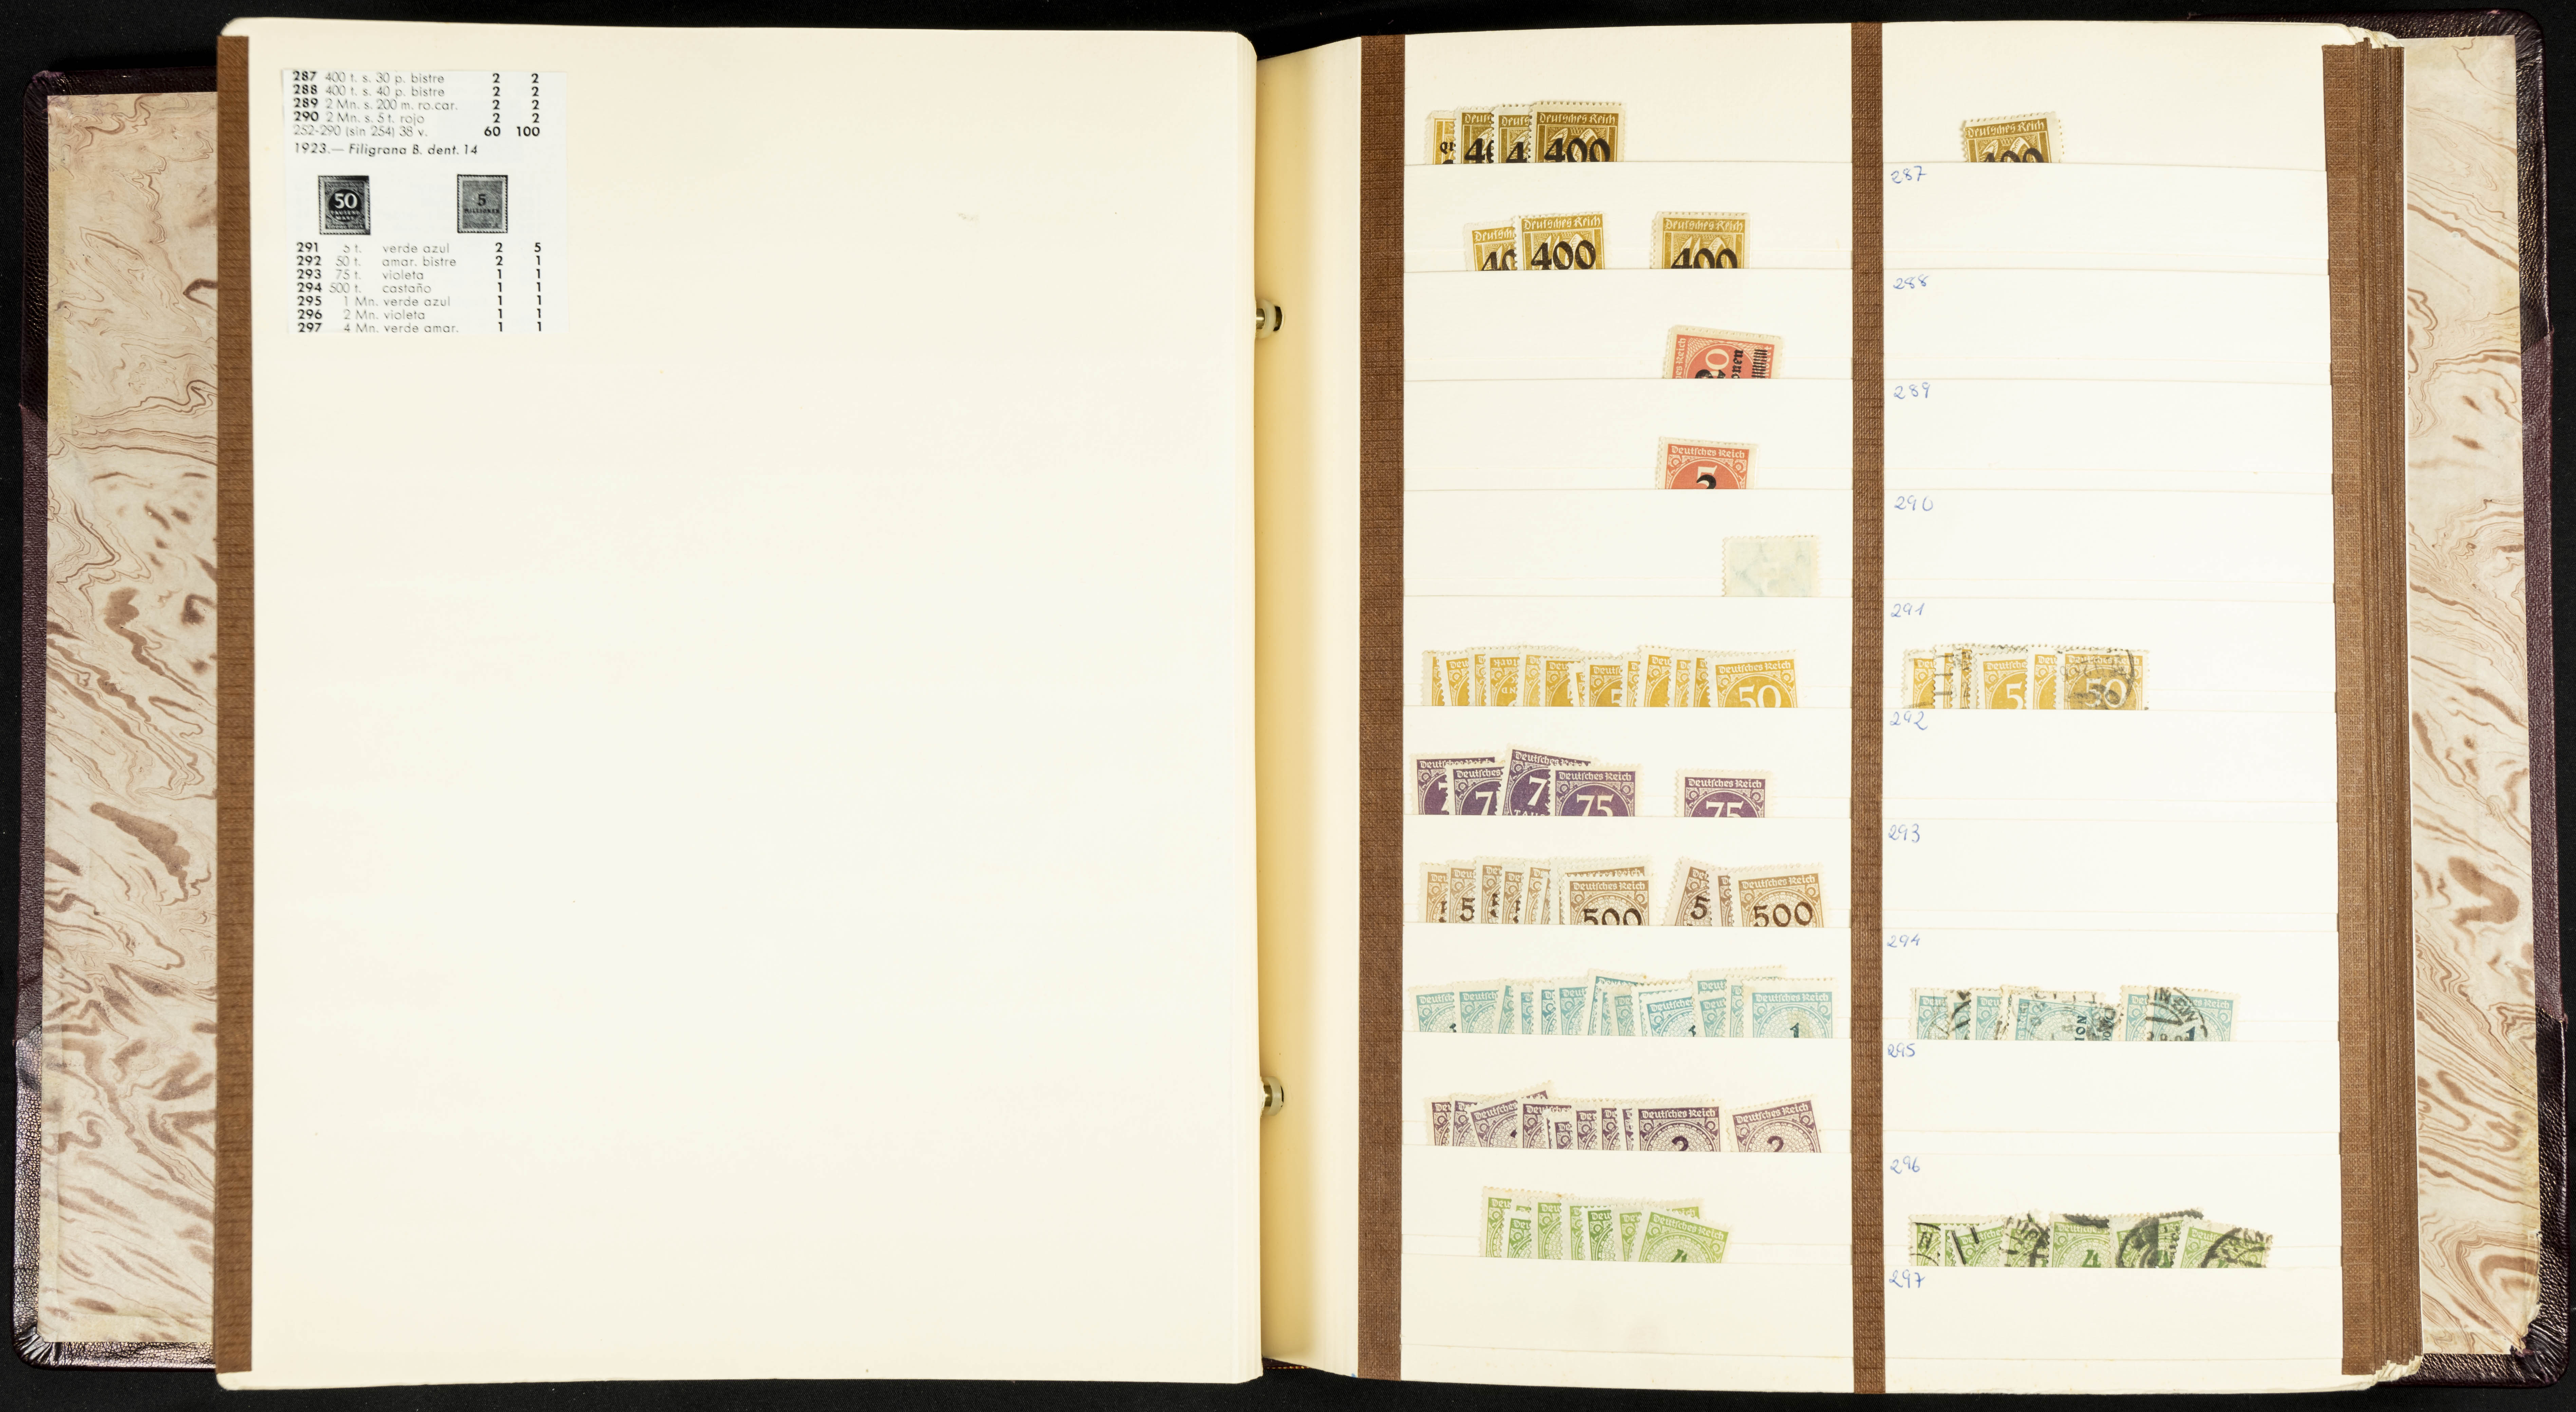 287 400 t. s. 30 p. bistre 2 2
288 400 t. s. 40 p. bistre 2 2
289 2 Mn. s. 200 m. ro.car. 2 2
290 2 Mn. s. 5 t. rojo 2 2
252-290 (sin 254) 38 v. 60 100
1923.— Filigrana B. dent. 14
50
5
291 5 t. verde azul 2 5
292 50 t. amar. bistre 2 1
293 75 t. violeta 1 1
294 500 t. castaño 1 1
295 1 Mn. verde azul 1 1
296 2 Mn. violeta 1 1
297 4 Mn. verde amar. 1 1
Deutsches Reich
400
Deutsches Reich
400
287
Deutsches Reich
400
Deutsches Reich
400
288
289
Deutsches Reich
5
290
291
Deutsches Reich
50
50
292
Deutsches Reich
75
Deutsches Reich
75
293
Deutsches Reich
500
Deutsches Reich
500
294
Deutsches Reich
1
295
Deutsches Reich
2
Deutsches Reich
2
296
Deutsches Reich
4
4
297